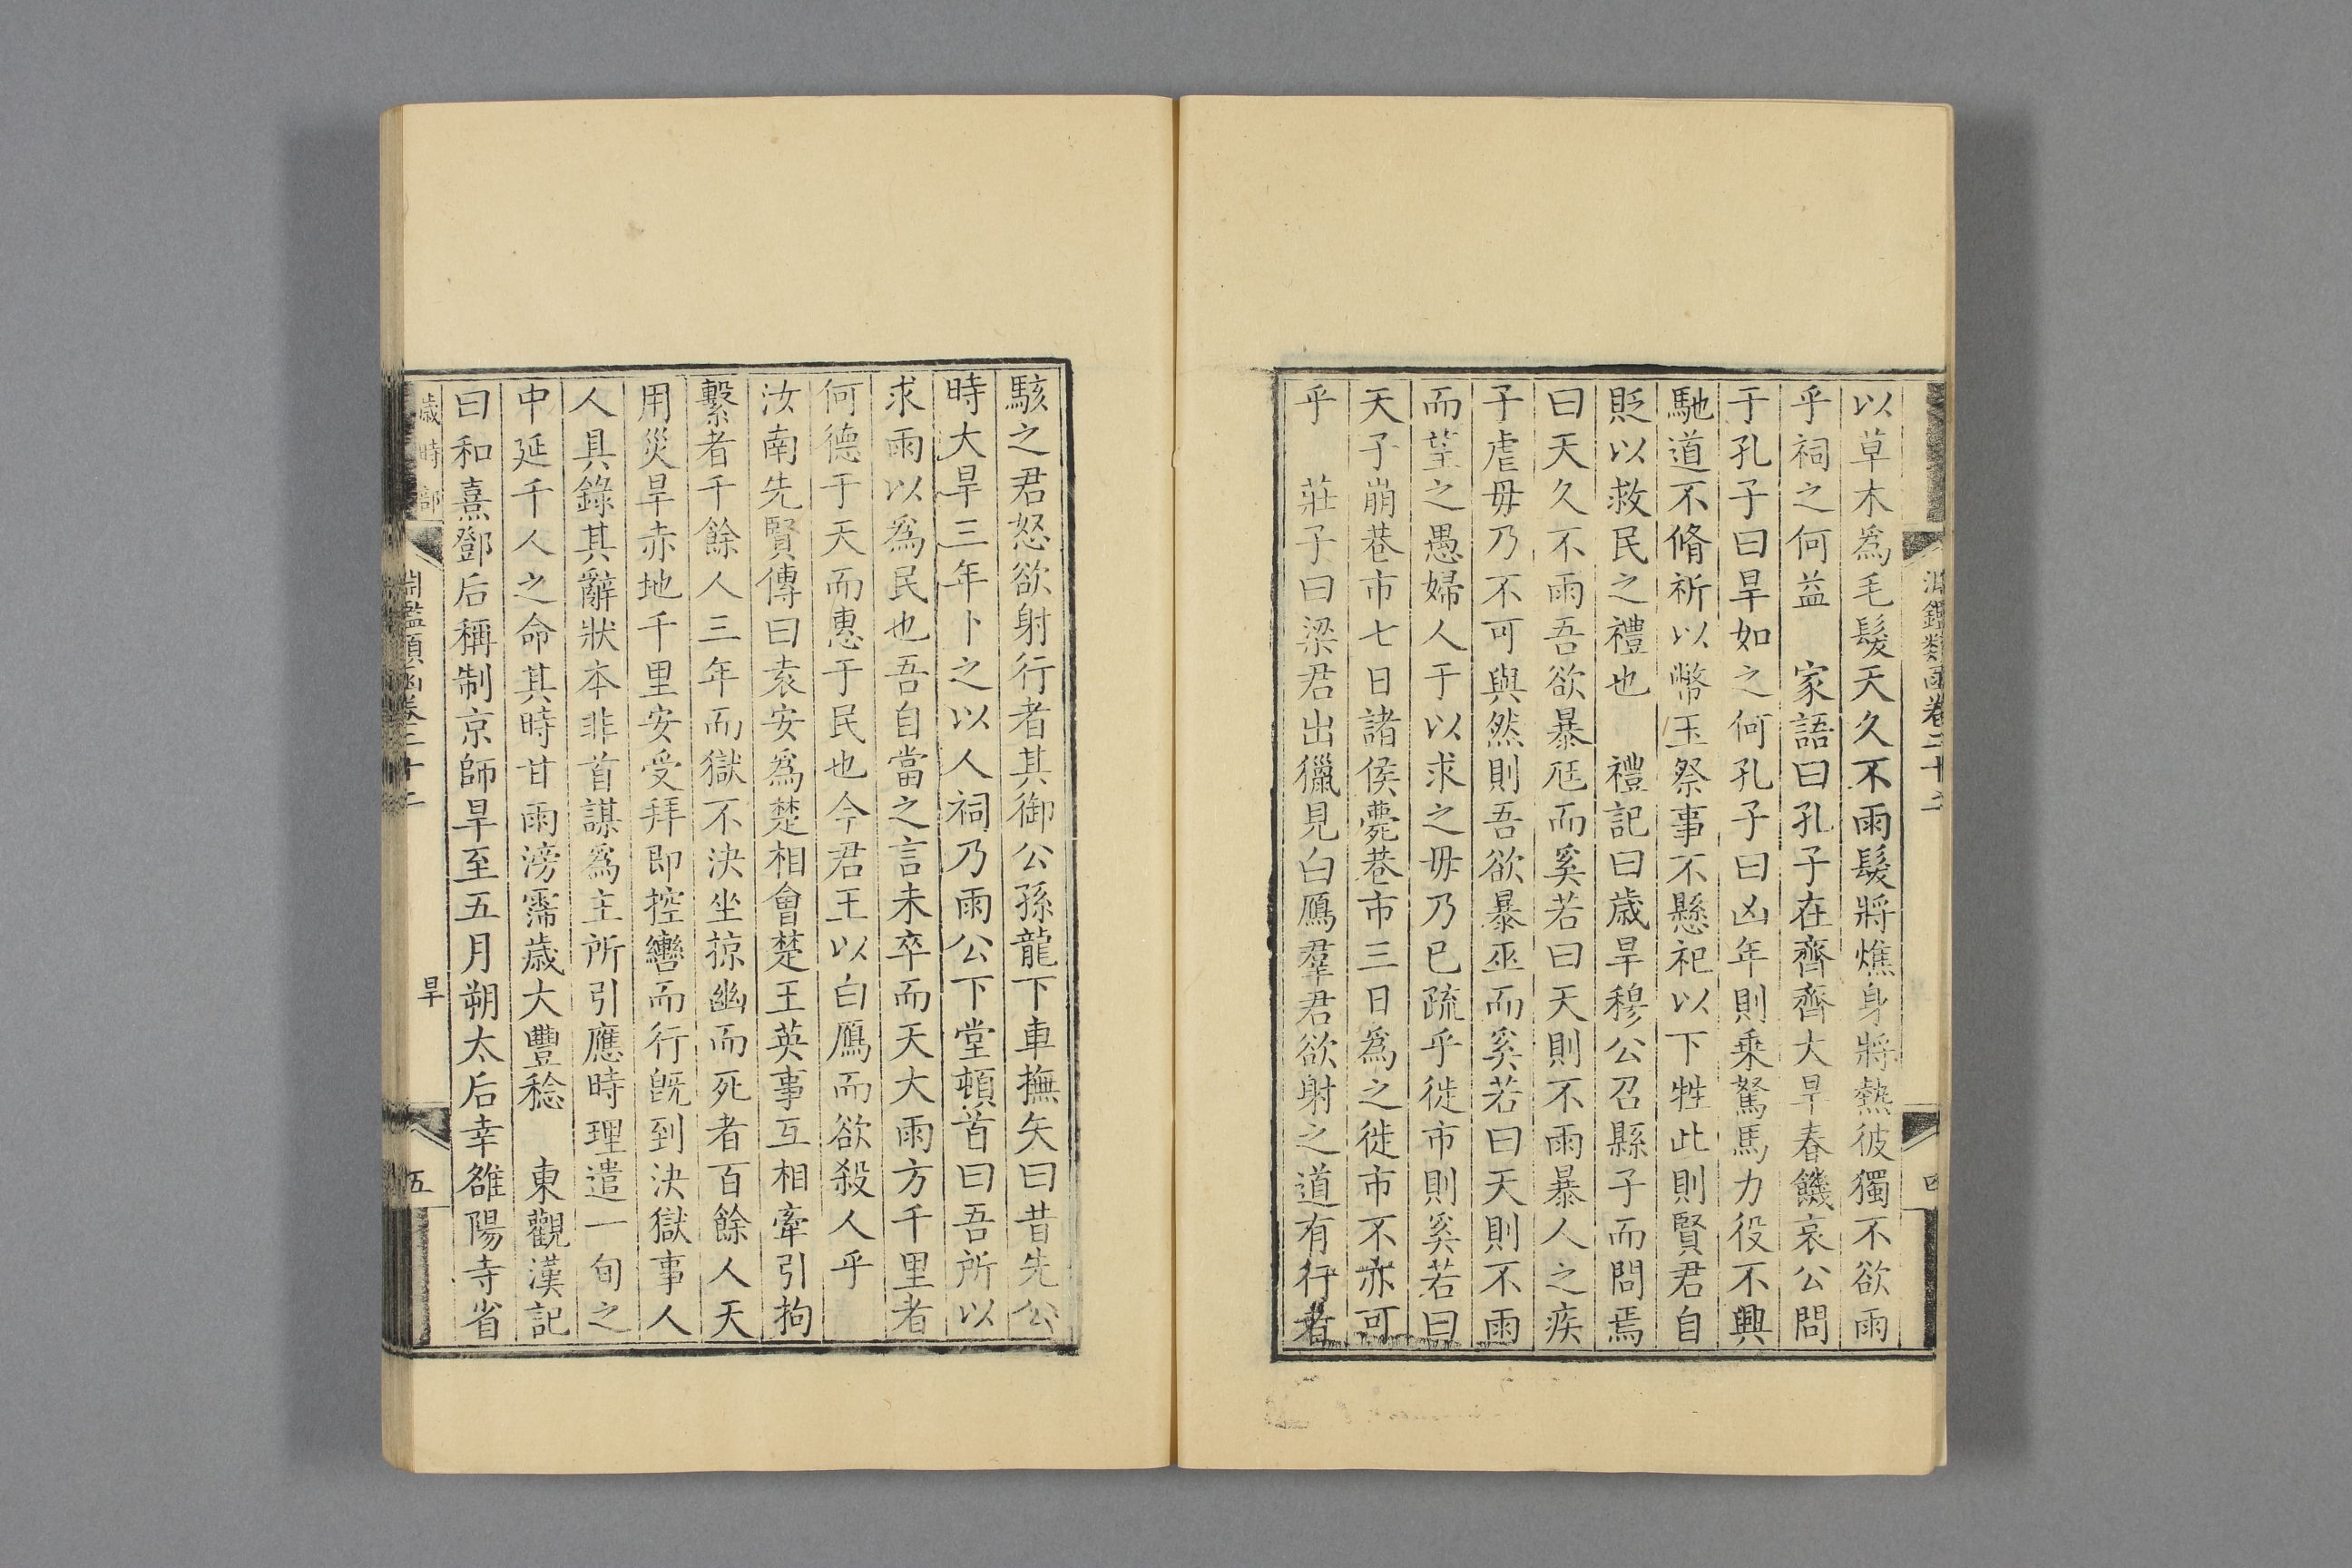 淵鑑類函卷二十二
四
以草木為毛髮天久不雨髮將燋身將熱彼獨不欲雨
乎祠之何益　家語曰孔子在齊齊大旱春饑哀公問
于孔子曰旱如之何孔子曰凶年則乗駑馬力役不興
馳道不脩祈以幣玉祭事不懸祀以下牲此則賢君自
貶以救民之禮也　禮記曰歲旱穆公召縣子而問焉
曰天久不雨吾欲暴尫而奚若曰天則不雨暴人之疾
子虐毋乃不可與然則吾欲暴巫而奚若曰天則不雨
而望之愚婦人于以求之毋乃已疏乎徙市則奚若曰
天子崩巷市七日諸侯薨巷市三日為之徙市不亦可
乎　莊子曰梁君出獵見白鴈羣君欲射之道有行者
駭之君怒欲射行者其御公孫龍下車撫矢曰昔先公
時大旱三年卜之以人祠乃雨公下堂頓首曰吾所以
求雨以為民也吾自當之言未卒而天大雨方千里者
何德于天而惠于民也今君王以白鴈而欲殺人乎
汝南先賢傳曰袁安為楚相會楚王英事互相牽引拘
繫者千餘人三年而獄不決坐掠幽而死者百餘人天
用災旱赤地千里安受拜即控轡而行旣到決獄事人
人具錄其辭狀本非首謀為主所引應時理遣一旬之
中延千人之命其時甘雨滂霈歲大豐稔　東觀漢記
曰和熹鄧后稱制京師旱至五月朔太后幸雒陽寺省
歲時部
淵鑑類函卷二十二
旱
五